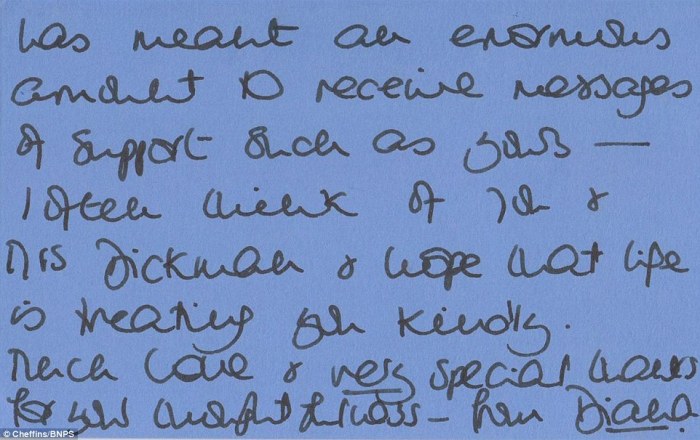 has meant an enormous
amount to receive messages
of support such as yours —
I often think of you &
Mrs Dickman & hope that life
is treating you kindly.
Much love & very special thanks
for your thoughtfulness – from Diana.
© Cheffins/BNPS